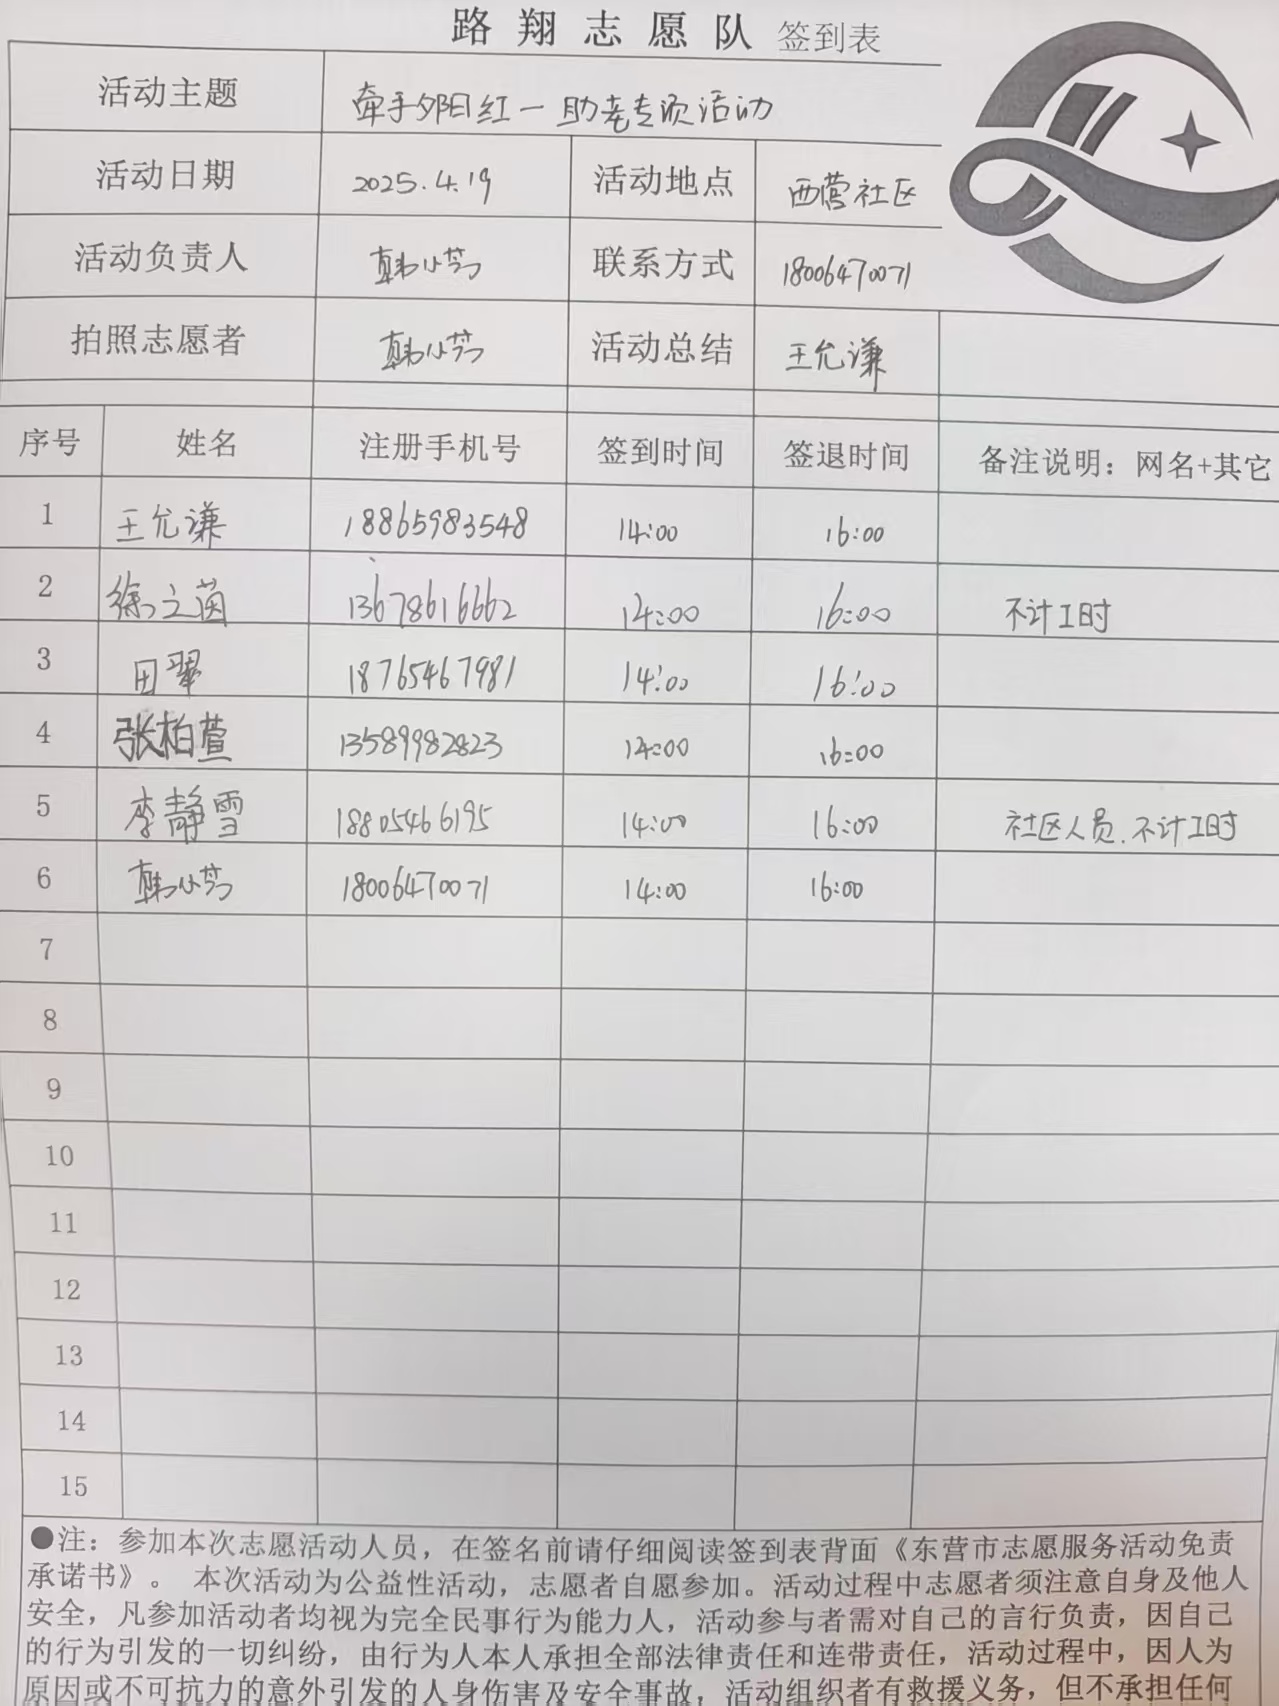 路翔志愿队 签到表
活动主题 牵手夕阳红一助老专项活动
活动日期 2025.4.19 活动地点 西营社区
活动负责人 韩小芳 联系方式 18006470071
拍照志愿者 韩小芳 活动总结 王允谦
序号 姓名 注册手机号 签到时间 签退时间 备注说明：网名+其它
1 王允谦 18865983548 14:00 16:00
2 徐立茵 13678616662 14:00 16:00 不计工时
3 田翠 18765467981 14:00 16:00
4 张柏萱 13589982823 14:00 16:00
5 李静雪 18805466195 14:00 16:00 社区人员.不计工时
6 韩小芳 18006470071 14:00 16:00
7
8
9
10
11
12
13
14
15
●注：参加本次志愿活动人员，在签名前请仔细阅读签到表背面《东营市志愿服务活动免责
承诺书》。 本次活动为公益性活动，志愿者自愿参加。活动过程中志愿者须注意自身及他人
安全，凡参加活动者均视为完全民事行为能力人，活动参与者需对自己的言行负责，因自己
的行为引发的一切纠纷，由行为人本人承担全部法律责任和连带责任，活动过程中，因人为
原因或不可抗力的意外引发的人身伤害及安全事故，活动组织者有救援义务，但不承担任何